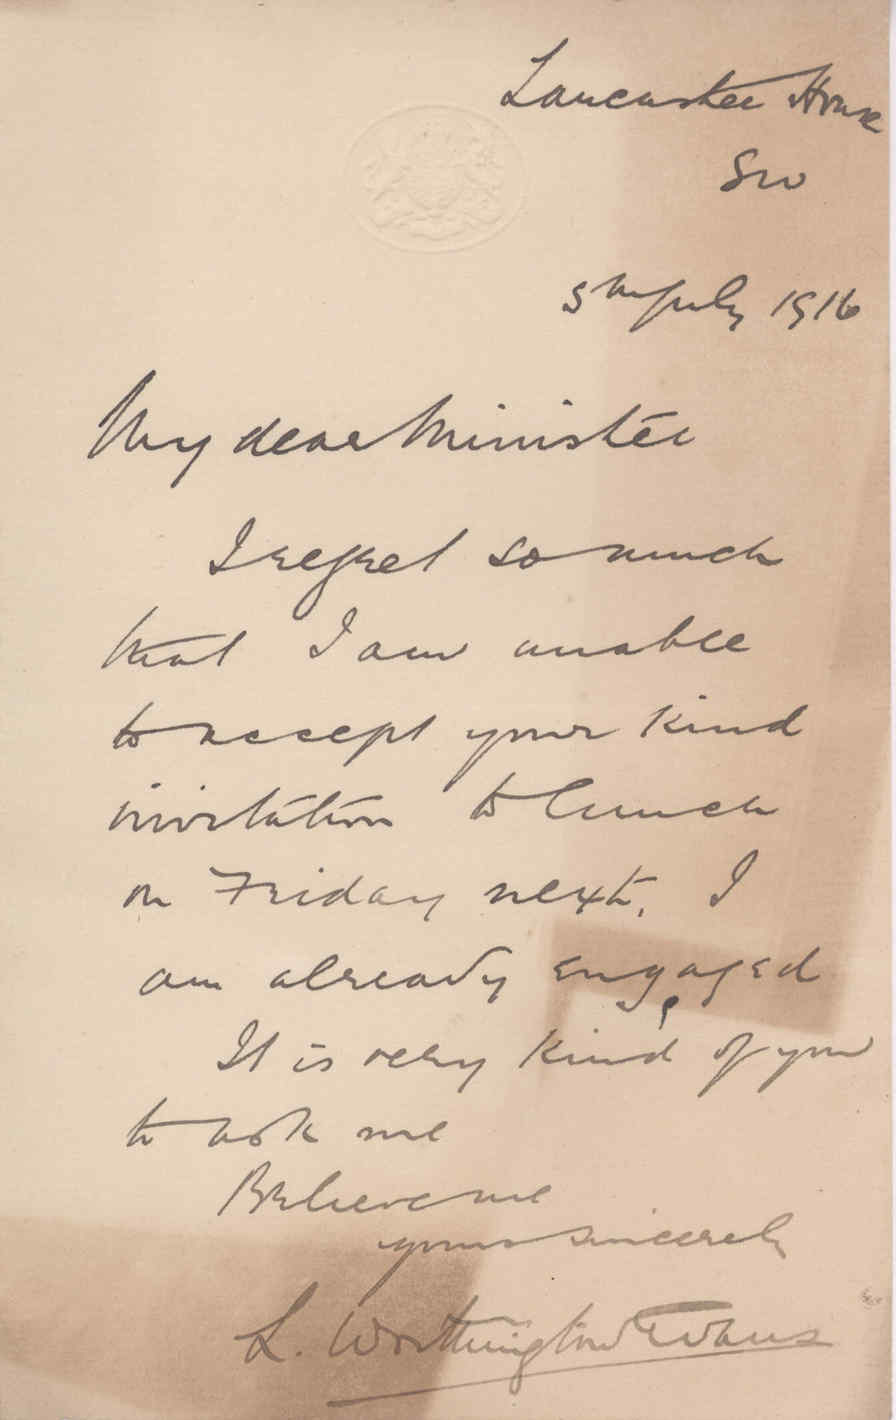 Lancaster House
SW
5th July 1916
My dear Minister
I regret so much
that I am unable
to accept your kind
invitation to lunch
on Friday next, I
am already engaged
It is very kind of you
to ask me
Believe me
yours sincerely
L. Worthington Evans